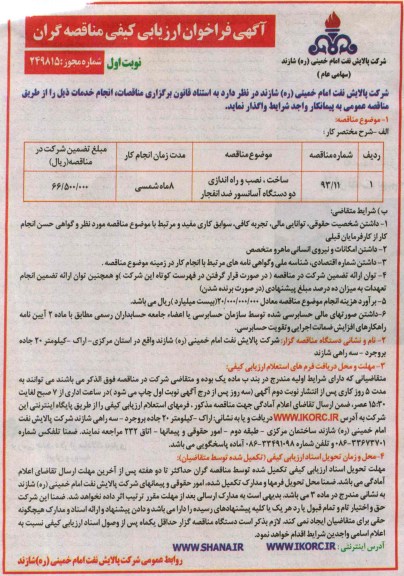 آگهی فراخوان ارزیابی کیفی مناقصه گران
نوبت اول
شماره مجوز: ۲۴۹۸۱۵
شرکت پالایش نفت امام خمینی (ره) شازند
(سهامی عام)
شرکت پالایش نفت امام خمینی (ره) شازند در نظر دارد به استناد قانون برگزاری مناقصات، انجام خدمات ذیل را از طریق
مناقصه عمومی به پیمانکار واجد شرایط واگذار نماید.
۱- موضوع مناقصه:
الف - شرح مختصر کار:
ردیف شماره مناقصه موضوع مناقصه مدت زمان انجام کار مبلغ تضمین شرکت در
مناقصه (ریال)
۱ ۹۳/۱۱ ساخت، نصب و راه اندازی
دو دستگاه آسانسور ضد انفجار ۸ ماه شمسی ۶۶/۵۰۰/۰۰۰
ب) شرایط متقاضی:
۱- داشتن شخصیت حقوقی، توانایی مالی، تجربه کافی، سوابق کاری مفید و مرتبط با موضوع مناقصه مورد نظر و گواهی حسن انجام
کار از کارفرمایان قبلی
۲- داشتن امکانات و نیروی انسانی ماهر و متخصص
۳- داشتن شماره اقتصادی، شناسه ملی و گواهی نامه های مرتبط با انجام کار در زمینه موضوع مناقصه.
۴- توان ارائه تضمین شرکت در مناقصه (در صورت قرار گرفتن در فهرست کوتاه این شرکت) و همچنین توان ارائه تضمین انجام
تعهدات به میزان ده درصد مبلغ پیشنهادی (در صورت برنده شدن)
۵- برآورد هزینه انجام موضوع مناقصه معادل ۲۰/۰۰۰/۰۰۰/۰۰۰ (بیست میلیارد) ریال می باشد.
۶- داشتن صورتهای مالی حسابرسی شده توسط سازمان حسابرسی یا اعضاء جامعه حسابداران رسمی مطابق با ماده ۲ آیین نامه
راهکارهای افزایش ضمانت اجرایی و تقویت حسابرسی.
۲- نام و نشانی دستگاه مناقصه گزار: شرکت پالایش نفت امام خمینی (ره) شازند واقع در استان مرکزی - اراک - کیلومتر ۲۰ جاده
بروجرد - سه راهی شازند
۳- مهلت و محل دریافت فرم های استعلام ارزیابی کیفی:
متقاضیانی که دارای شرایط اولیه مندرج در بند ب ماده یک بوده و متقاضی شرکت در مناقصه فوق الذکر می باشند می توانند به
مدت ۵ روز کاری پس از انتشار نوبت دوم آگهی (سه روز پس از درج آگهی نوبت اول چاپ می شود) در ساعت اداری از ۷ صبح لغایت
۱۵:۳۰ عصر، ضمن ارسال تقاضای اعلام آمادگی جهت مناقصه مذکور، فرمهای استعلام ارزیابی کیفی را از طریق پایگاه اینترنتی این
شرکت به آدرس WWW.IKORC.IR دریافت و یا به نشانی: اراک - کیلومتر ۲۰ جاده بروجرد - سه راهی شازند شرکت پالایش نفت
امام خمینی (ره) شازند ساختمان مرکزی - طبقه دوم - امور حقوقی و پیمانها - اتاق ۲۲۲ مراجعه نمایند. ضمنا تلفکس شماره
۰۸۶-۳۳۶۷۳۷۰۱ و تلفن شماره ۰۸۶-۳۳۴۹۱۰۹۸ آماده پاسخگویی می باشد.
۴- محل و زمان تحویل اسناد ارزیابی کیفی (تکمیل شده توسط متقاضیان):
مهلت تحویل اسناد ارزیابی کیفی تکمیل شده توسط مناقصه گران حداکثر تا دو هفته پس از آخرین مهلت ارسال تقاضای اعلام
آمادگی می باشد. ضمنا محل تحویل فرمها و مدارک تکمیل شده، امور حقوقی و پیمانهای شرکت پالایش نفت امام خمینی (ره) شازند
به نشانی مندرج در ماده ۳ می باشد. بدیهی است به مدارک ارسالی بعد از مهلت مقرر ترتیب اثر داده نخواهد شد. ضمنا این شرکت
حق و اختیار تام و تمام قبول یا رد هر یک یا کلیه پیشنهادهای رسیده را دارا می باشد و دادن پیشنهاد و ارائه اسناد و مدارک هیچگونه
حقی برای متقاضیان ایجاد نمی کند. لازم بذکر است دستگاه مناقصه گزار حداقل یکماه پس از وصول اسناد ارزیابی کیفی نسبت به
اعلام اسامی واجدین شرایط اقدام خواهد نمود.
آدرس اینترنتی: WWW.IKORC.IR و WWW.SHANA.IR
روابط عمومی شرکت پالایش نفت امام خمینی (ره) شازند